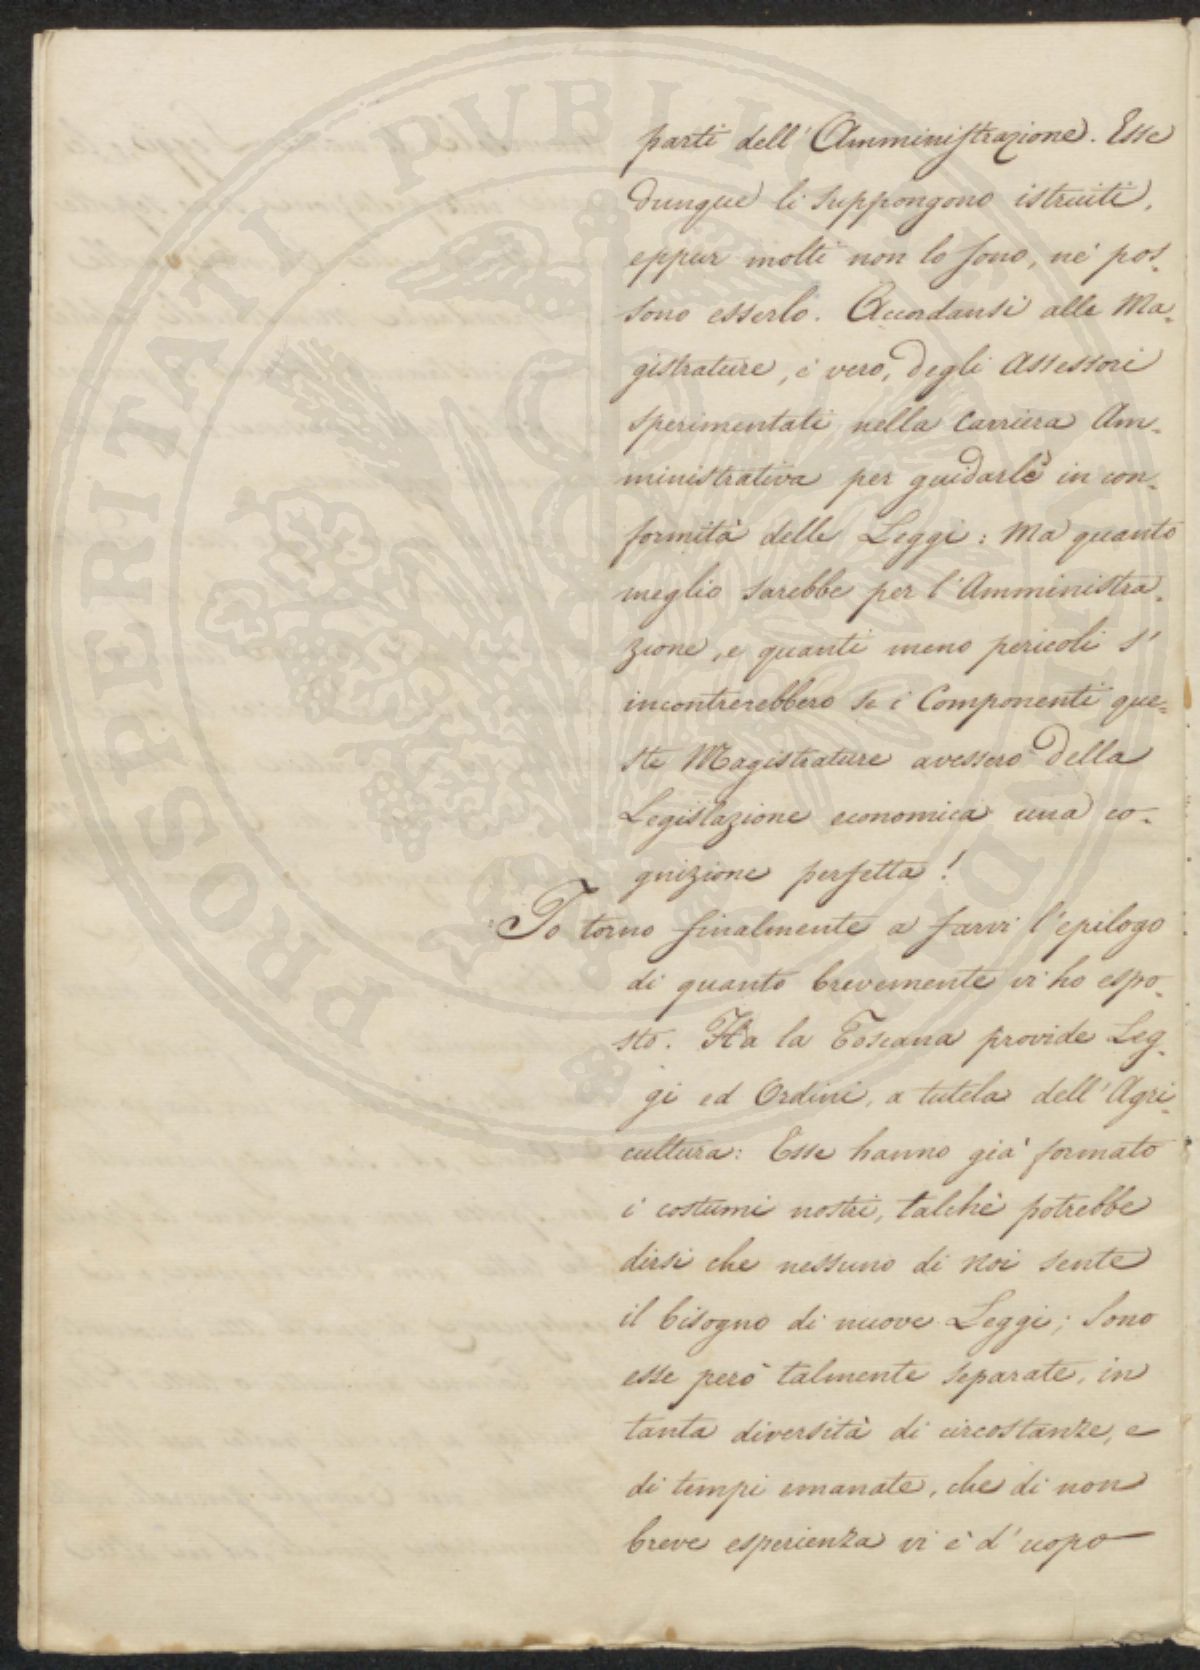 parti dell' Amministrazione. Esse
dunque li suppongono istruiti,
eppur molti non lo sono, nè pos-
sono esserlo. Accordansi alle Ma-
gistrature, è vero, degli Assessori
sperimentati nella Carriera Am-
ministrativa per guidarle in con-
formità delle Leggi: Ma quanto
meglio sarebbe per l'Amministra-
zione, e quanti meno pericoli s'
incontrerebbero se i Componenti que-
ste Magistrature avessero della
Legislazione economica una co-
gnizione perfetta!
Io torno finalmente a farvi l'epilogo
di quanto brevemente vi ho espo-
sto. Ha la Toscana provide Leg-
gi ed Ordini, a tutela dell'Agri-
cultura: Esse hanno già formato
i costumi nostri, talchè potrebbe
dirsi che nessuno di Noi sente
il bisogno di nuove Leggi; Sono
esse però talmente separate, in
tanta diversità di circostanze, e
di tempi emanate, che di non
breve esperienza vi è d'uopo
PROSPERITATI PUBLICAE